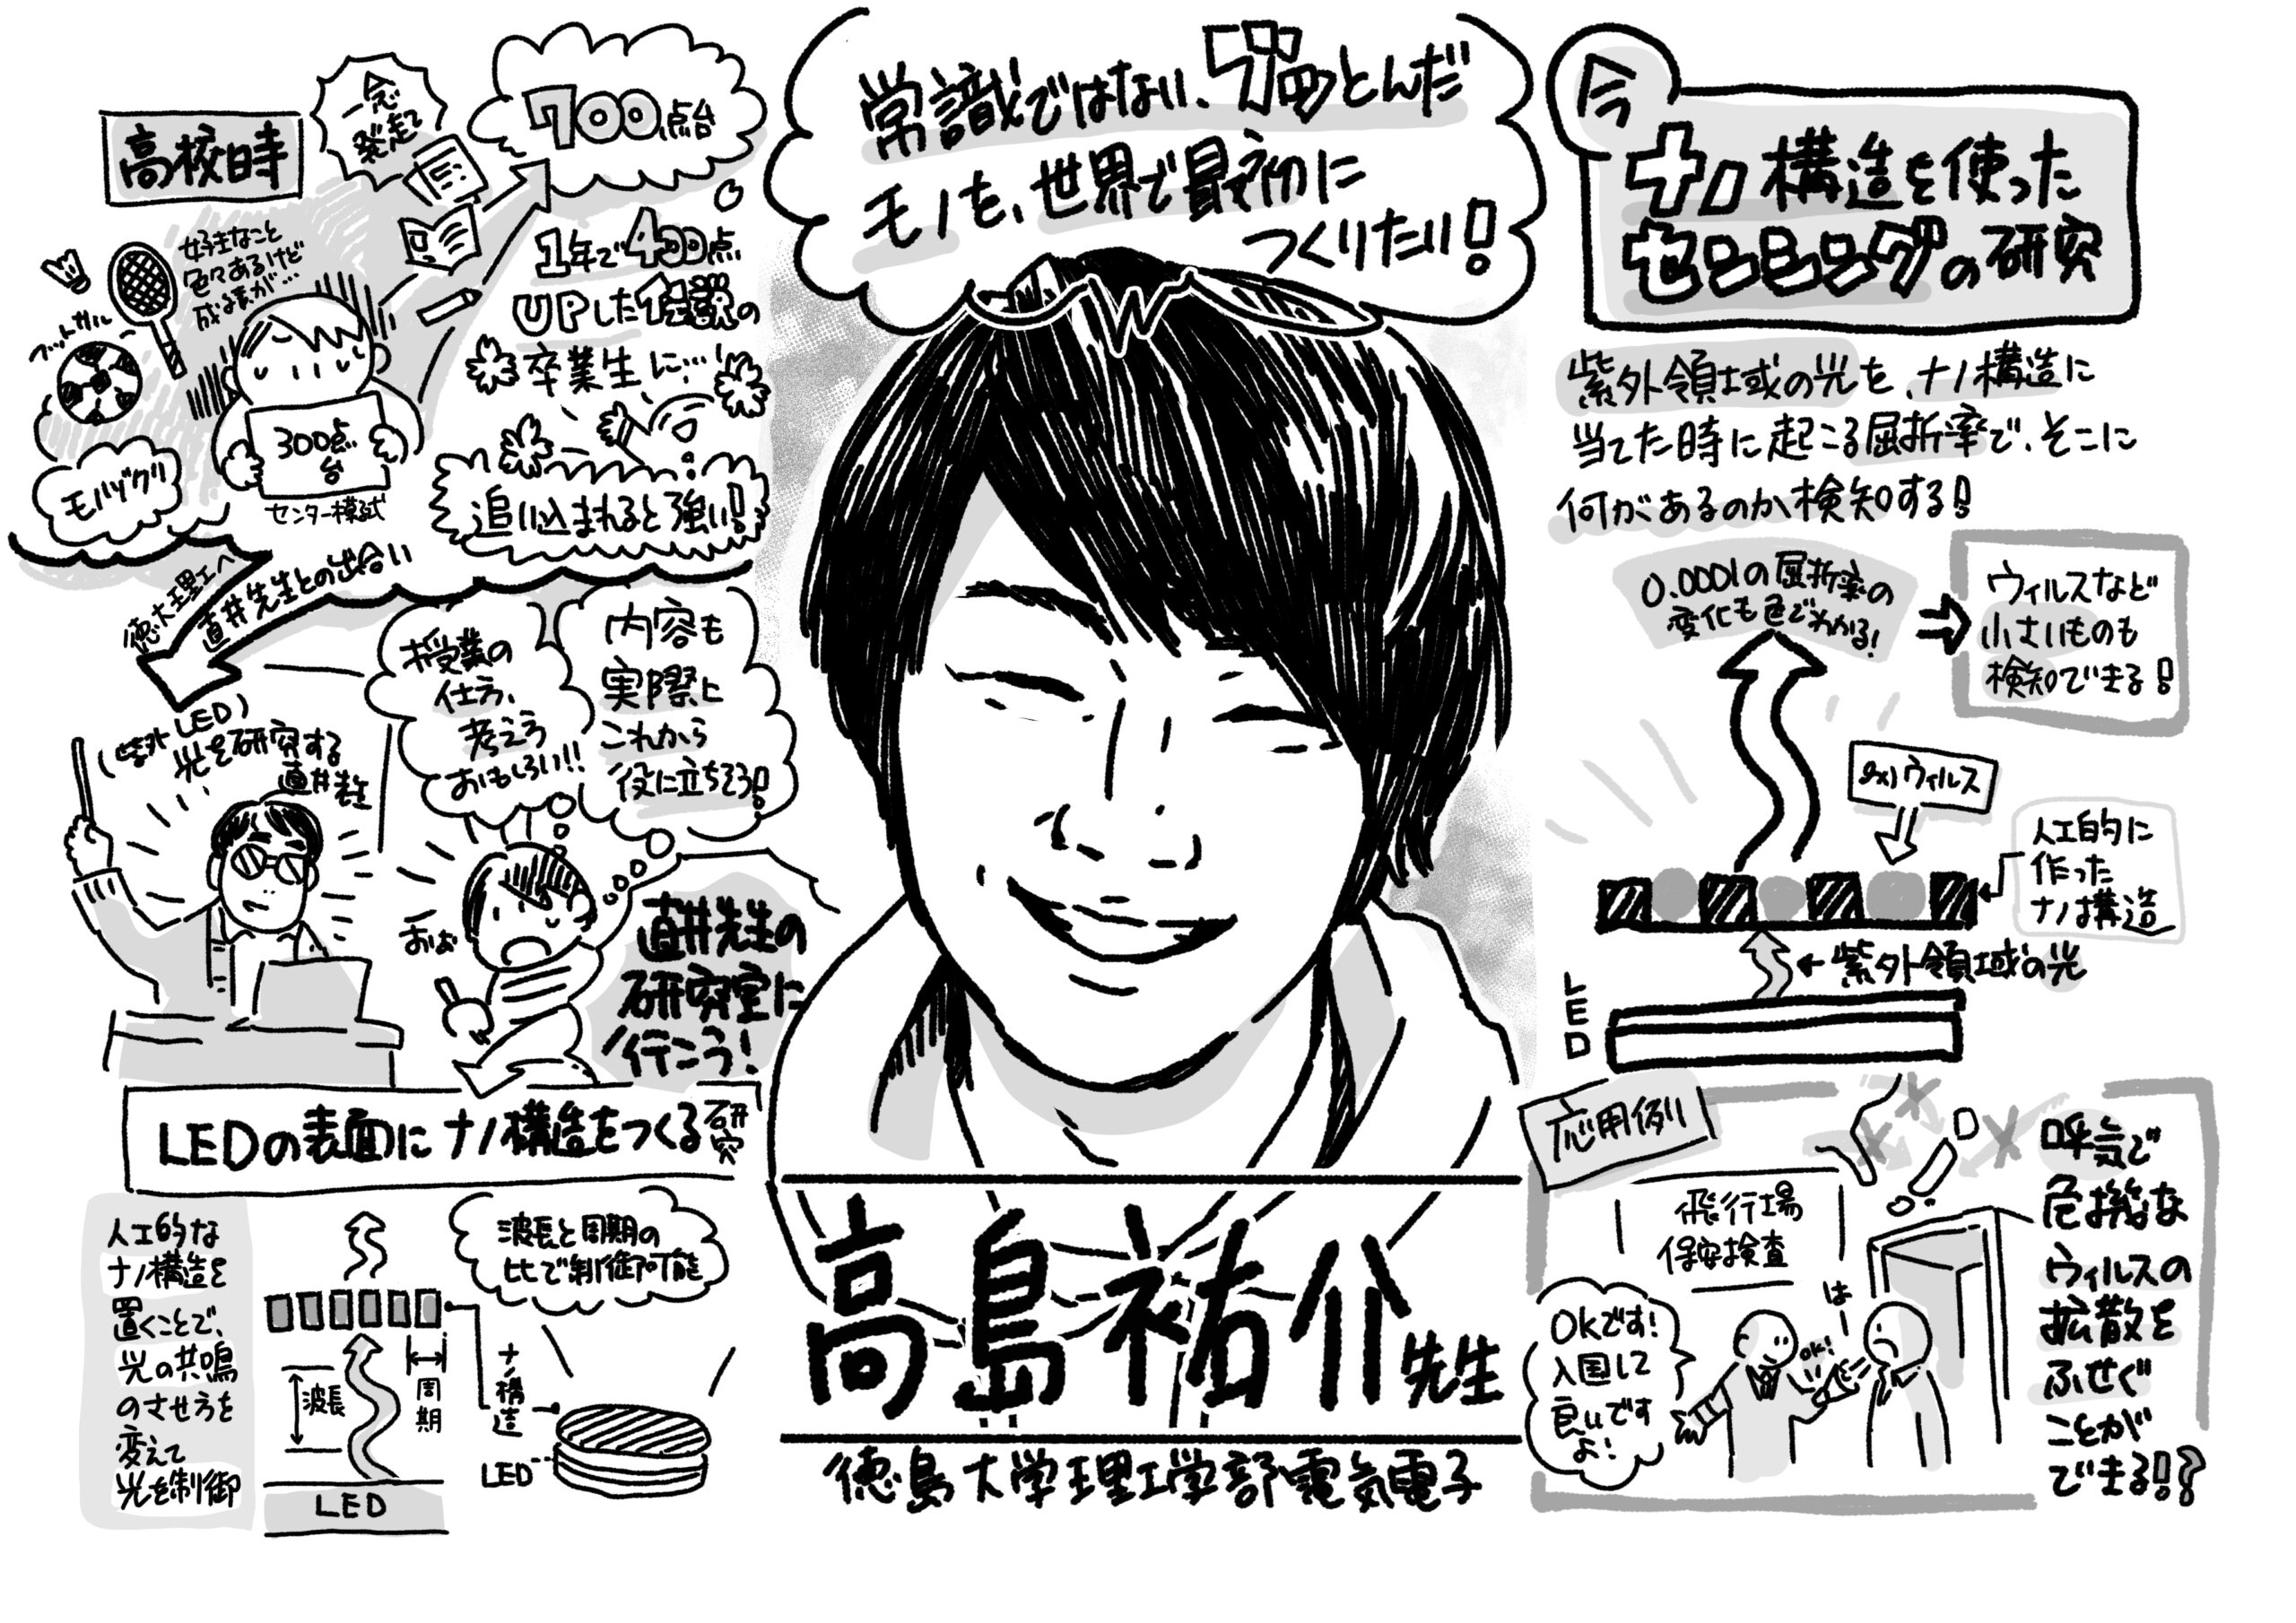 高校時
一念
発起で
700点台
好きなこと
色々あるけど
成績が…
フットサル
モバゲグリ
300点
台
センター模試
1年で400点
UPした伝説の
卒業生に…
追い込まれると強い!
徳大理工へ
直井先生との出合い
(紫外LED)
光を研究する
直井先生
授業の
仕方、
考え方
おもしろい!!
内容も
実際に
これから
役に立ちそう!
おぉ
直井先生の
研究室に
行こう!
LEDの表面にナノ構造をつくる研究
人工的な
ナノ構造を
置くことで、
光の共鳴
のさせ方を
変えて
光を制御
波長と周期の
比で制御可能
波長
周期
LED
ナノ構造
LED
常識ではない、ブッとんだ
モノを、世界で最初に
つくりたい!
高島祐介先生
徳島大学理工学部電気電子
今
ナノ構造を使った
センシングの研究
紫外領域の光を、ナノ構造に
当てた時に起こる屈折率で、そこに
何があるのか検知する!
0.0001の屈折率の
変化も色でわかる!
ウィルスなど
小さいものも
検知できる!
ex)ウィルス
人工的に
作った
ナノ構造
紫外領域の光
LED
応用例
飛行場
保安検査
OKです!
入国して
良いです
よ!
OK!
はー
呼気で
危機な
ウィルスの
拡散を
ふせぐ
ことが
できる!?